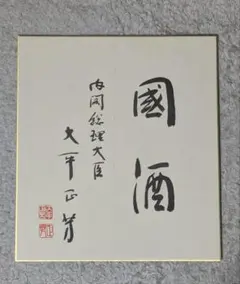 國酒
内閣総理大臣
大平正芳